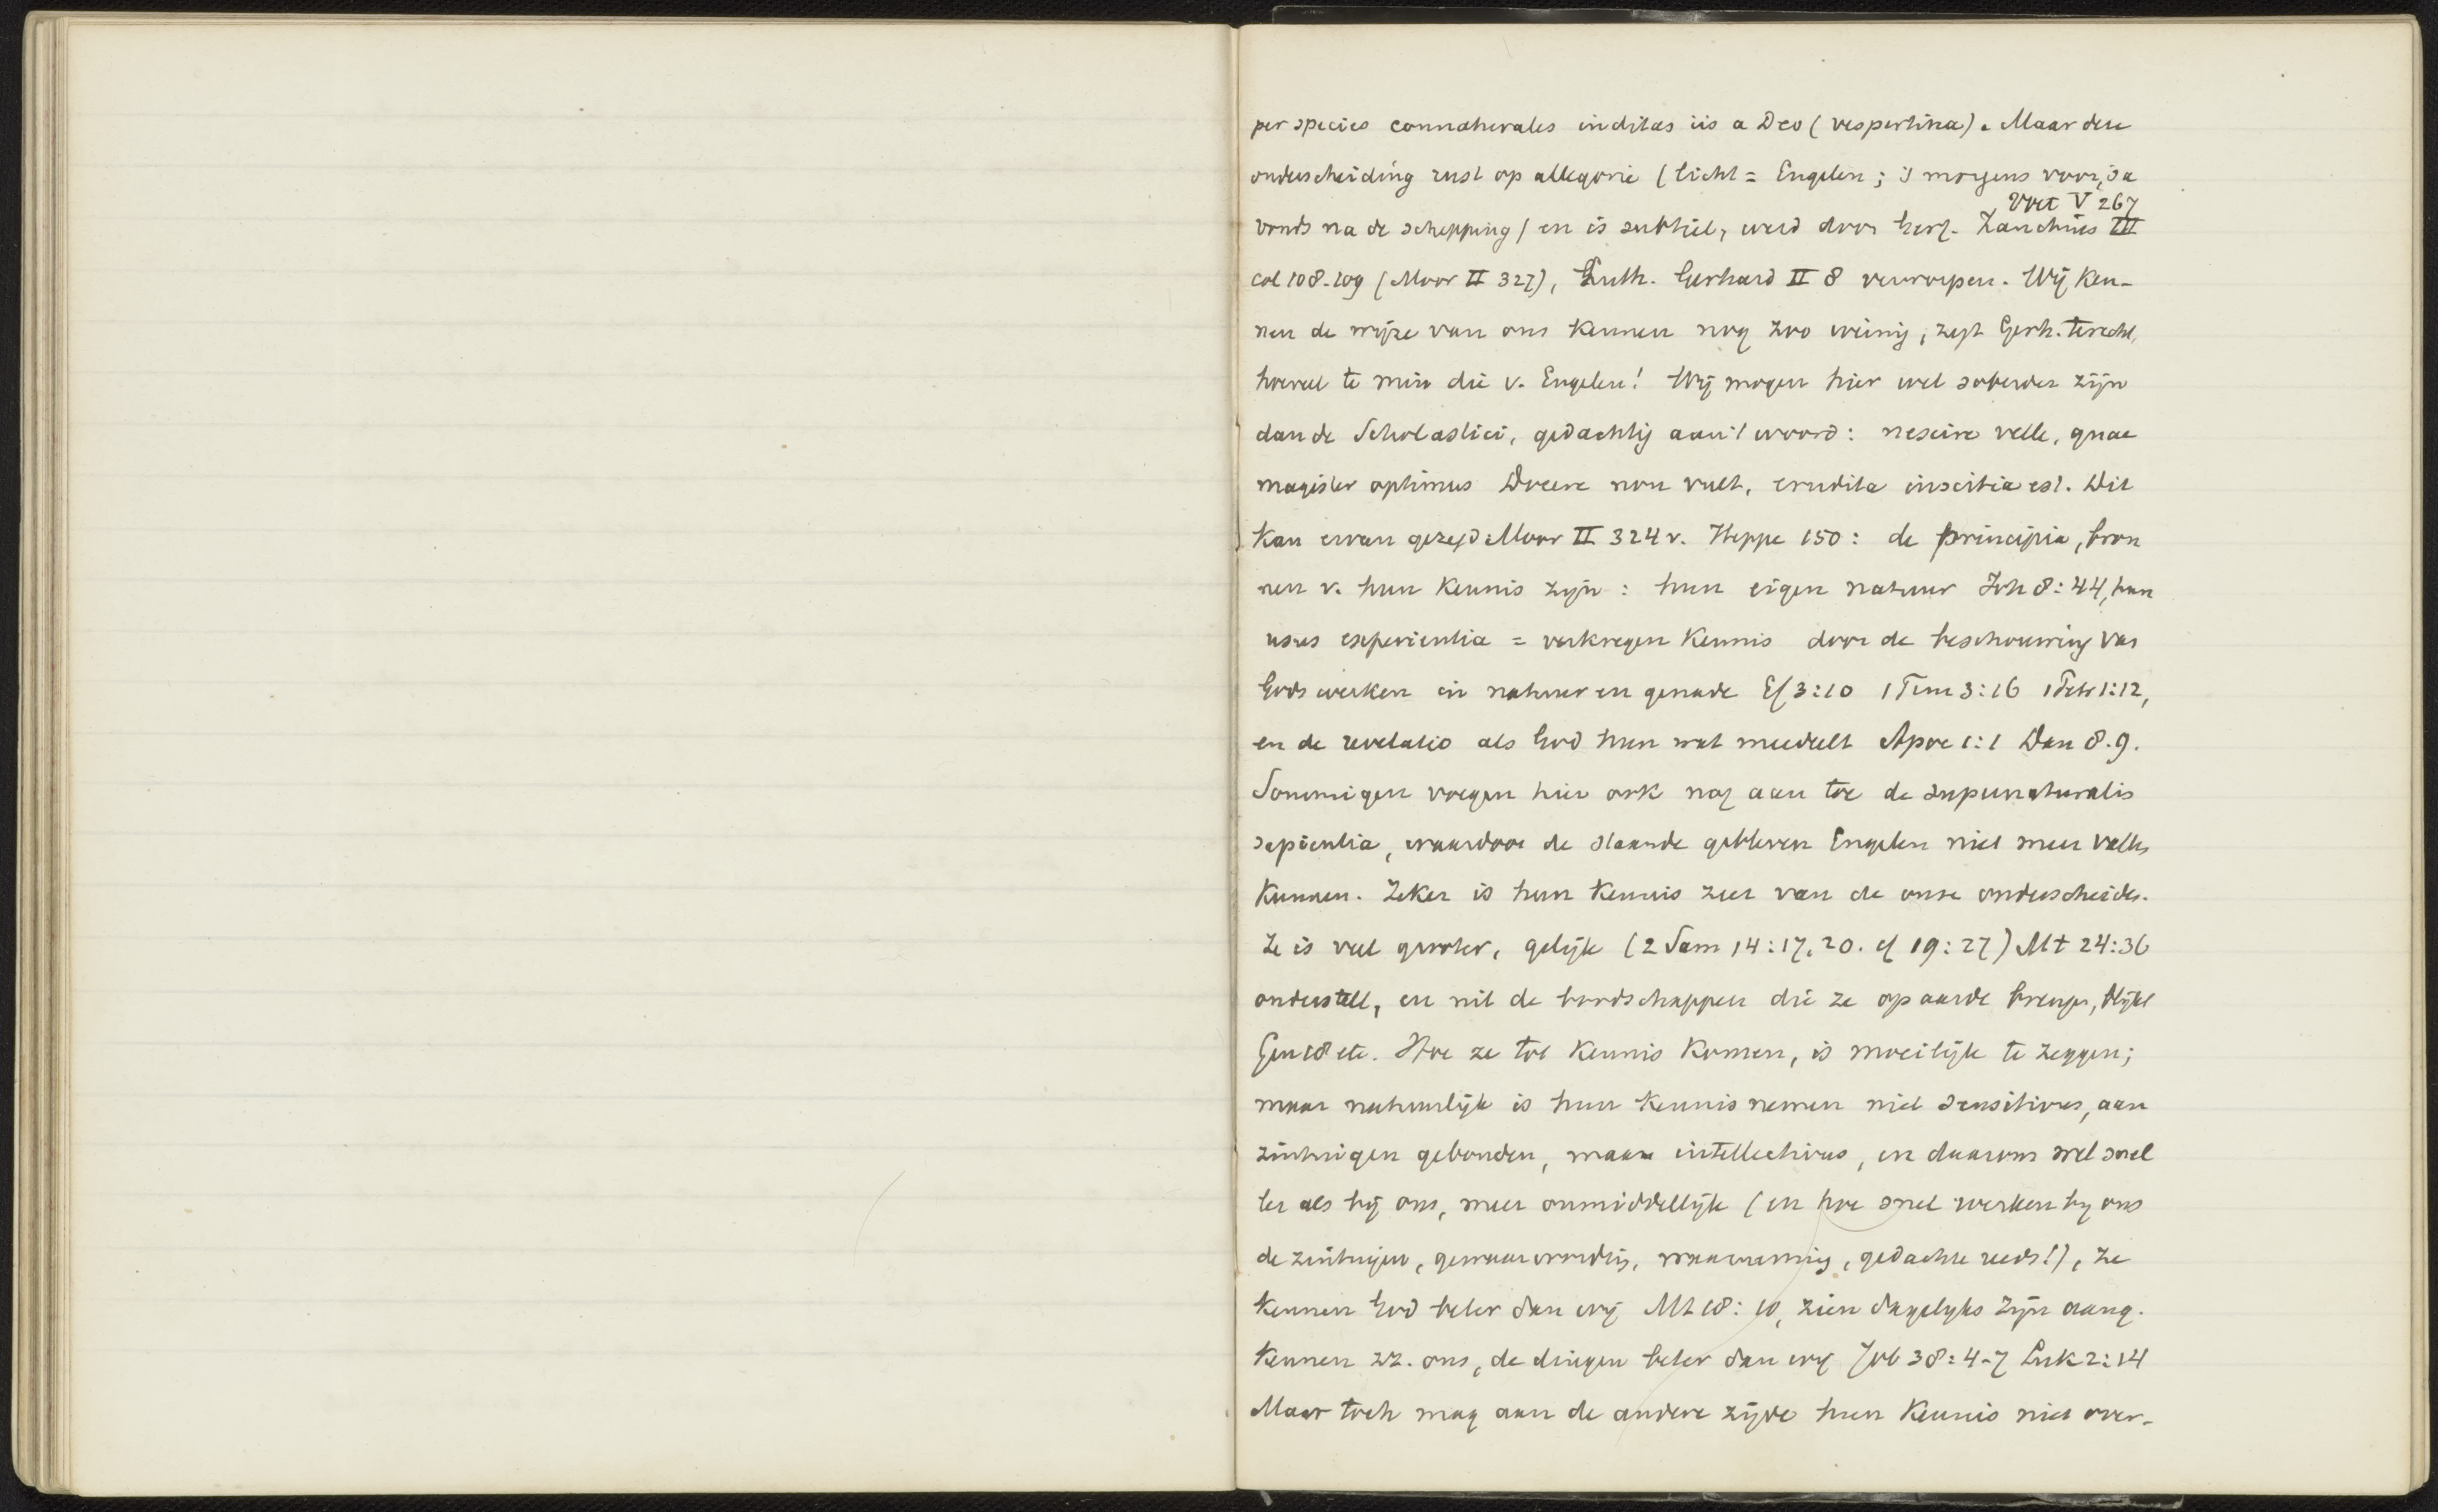 per species connaturales inditas iis a Deo (vespertina). Maar deze
onderscheiding rust op allegorie (licht = Engelen; 's morgens voor, 's a
Voet V 267
vonds na de schepping) en is subtiel, werd door Herf. Zanchius III
col 108-109 (Moor II 327), Luth. Gerhard II 8 verworpen. Wij ken-
nen de wijze van ons kennen nog zoo weinig, zegt Gerh. terecht,
hoeveel te min die v. Engelen! Wij mogen hier wel soberder zijn
dan de Scholastici, gedachtig aan 't woord: nescire velle, quae
magister optimus docere non vult, erudita inscitia est. Dit
kan ervan gezegd: Moor II 324 v. Heppe 150: de principia, bron
nen v. hun kennis zijn: hun eigen natuur Joh 8:44, hun
usus experientia = verkregen kennis door de beschouwing van
Gods werken in natuur en genade Ef 3:10 1 Tim 3:16 1 Petr 1:12,
en de revelatio als God hun wat meedeelt Apoc 1:1 Dan 8.9.
Sommigen voegen hier ook nog aan toe de supernaturalis
sapientia, waardoor de staande gebleven Engelen niet meer vallen
kunnen. Zeker is hun kennis zeer van de onze onderscheiden.
Ze is veel grooter, gelijk (2 Sam 14:17,20. cf 19:27) Mt 24:36
onderstelt, en uit de boodschappen die ze op aarde brengen, blijkt
Gen 18 etc. Hoe ze tot kennis komen, is moeilijk te zeggen;
maar natuurlijk is hun kennis nemen niet sensitivus, aan
zintuigen gebonden, maar intellectivus, en daarom wel snel
ler als bij ons, meer onmiddellijk (en hoe snel werken bij ons
de zintuigen, gewaarwording, waarneming, gedachte reeds!), Ze
kennen God beter dan wij Mt 18:10, zien dagelyks Zijn aang.
kennen zz. ons, de dingen beter dan wij Job 38:4-7 Luk 2:14
Maar toch mag aan de andere zijde hun kennis niet over-